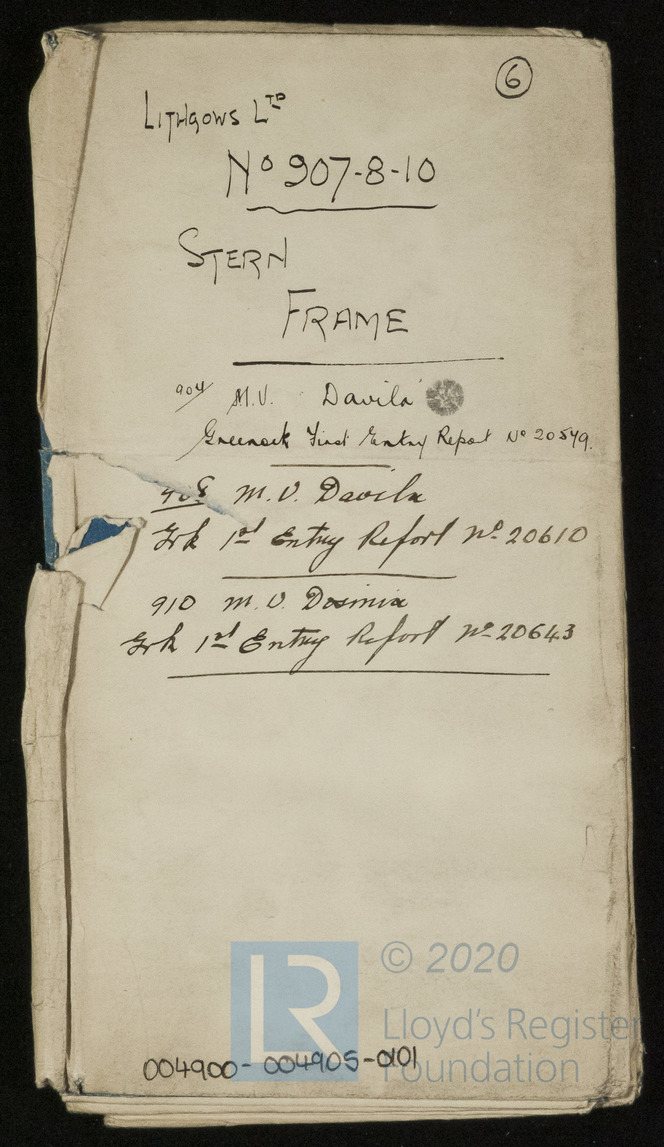 6
LITHGOWS LTD
No 907-8-10
STERN
FRAME
907 M.V. Davila
Greenock First Entry Report No 20579.
908 M.V. Davila
Grk 1st Entry Report No 20610
910 M.V. Dosinia
Grk 1st Entry Report No 20643
LR
© 2020
Lloyd's Register
Foundation
004900-004905-0101